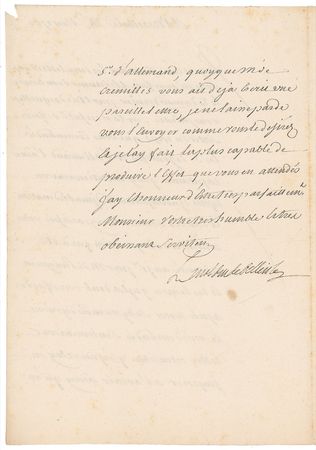 Sr. d'allemand, quoyque Mr. de
Cremilles vous ait deja ecrit une
pareille lettre, je ne laisse pas de
vous l'envoyer comme vous le desirez
et je l'ay fait la plus capable de
produire l'Effet que vous en attendés
J'ay l'honneur d'être tres parfaitemt.
Monsieur votre tres humble et tres
obeissant Serviteur